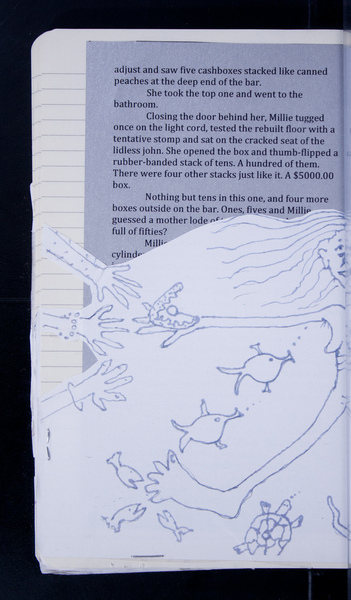 adjust and saw five cashboxes stacked like canned
peaches at the deep end of the bar.
She took the top one and went to the
bathroom.
Closing the door behind her, Millie tugged
once on the light cord, tested the rebuilt floor with a
tentative stomp and sat on the cracked seat of the
lidless john. She opened the box and thumb-flipped a
rubber-banded stack of tens. A hundred of them.
There were four other stacks just like it. A $5000.00
box.
Nothing but tens in this one, and four more
boxes outside on the bar. Ones, fives and Millie
guessed a mother lode
full of fifties?